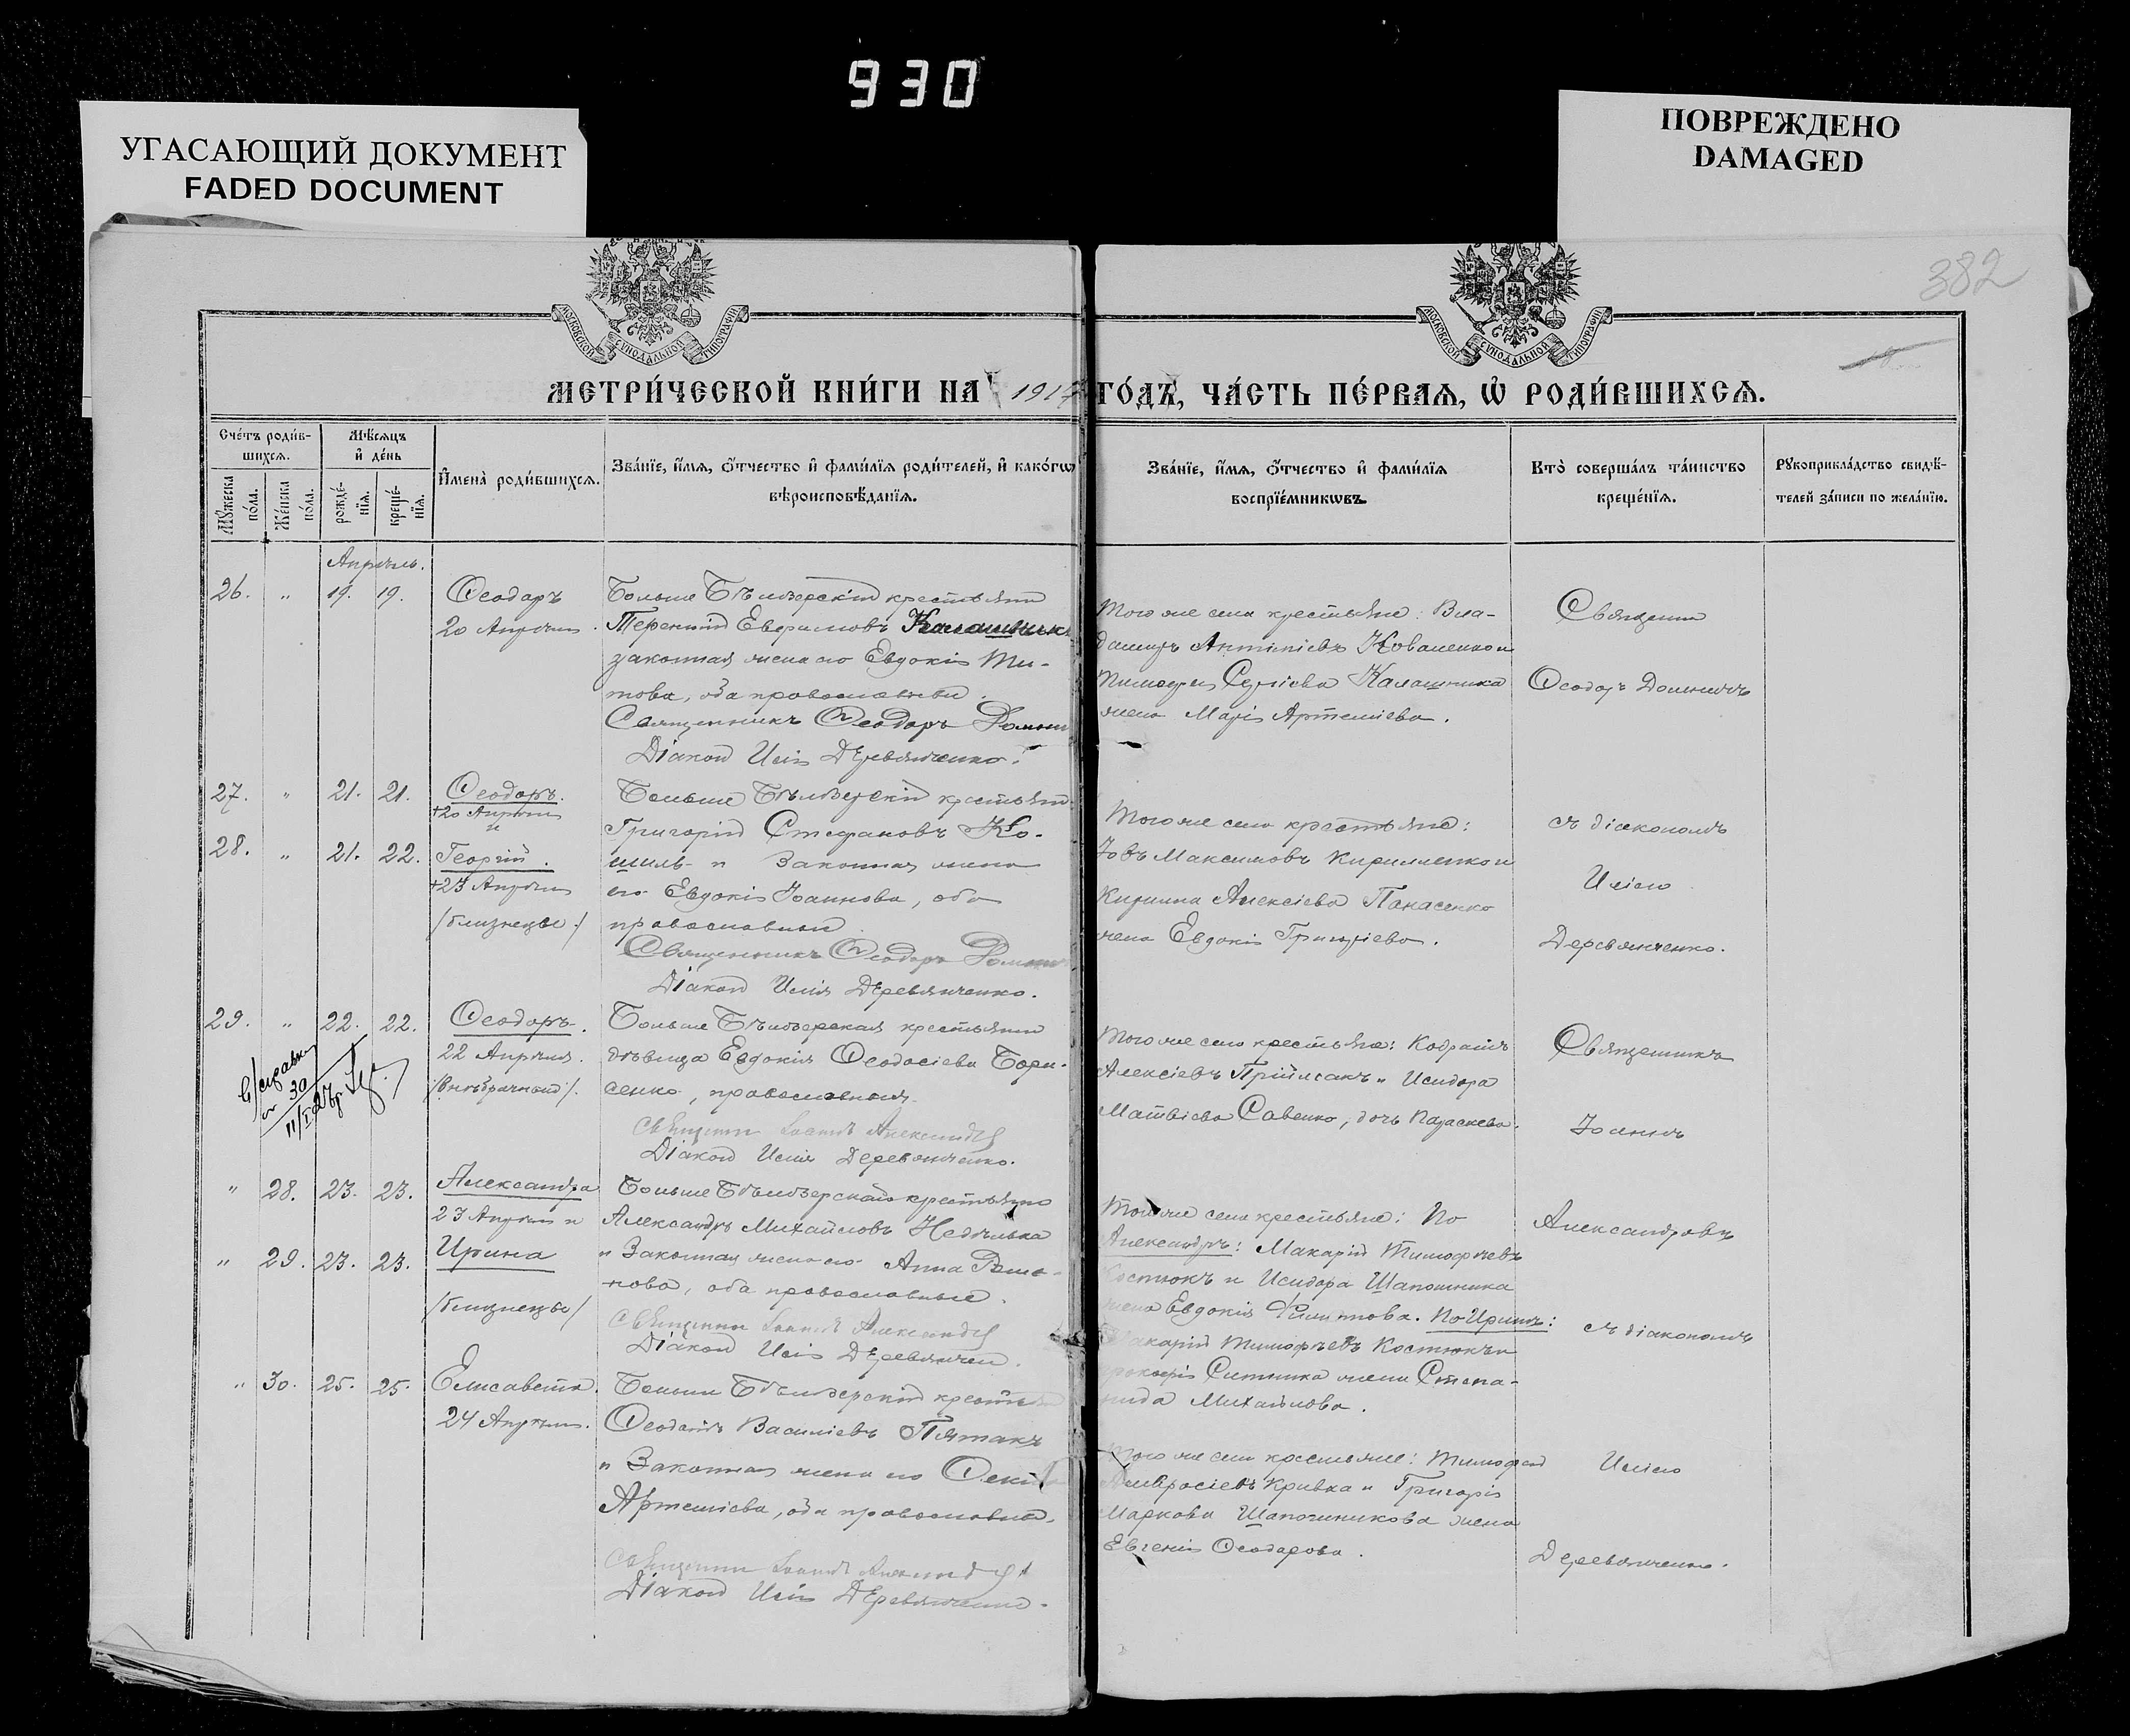 930
УГАСАЮЩИЙ ДОКУМЕНТ
FADED DOCUMENT
ПОВРЕЖДЕНО
DAMAGED
382
МОСКОВСКОЙ СѴНОДАЛЬНОЙ ТИПОГРАФІИ
МОСКОВСКОЙ СѴНОДАЛЬНОЙ ТИПОГРАФІИ
МЕТРИ́ЧЕСКОЙ КНИ́ГИ НА 1917 ГО́ДЪ, ЧА́СТЬ ПЕ́РВАЯ, Ѡ҆ РОДИ́ВШИХСЯ.
Сче́тъ роди́в-
шихся.
Мѣ́сяцъ
и҆ де́нь
Мꙋ́жеска
по́ла.
Же́нска
по́ла.
рожде́-
нїя.
креще́-
нїя.
И҆мена̀ роди́вшихся.
Зва́нїе, и҆́мя, ѻ҆́тчество и҆ фами́лїя роди́телей, и҆ како́гѡ
вѣроисповѣ́данїя.
Зва́нїе, и҆́мя, ѻ҆́тчество и҆ фами́лїя
воспрїе́мникѡвъ.
Кто̀ соверша́лъ та́инство
креще́нїя.
Рꙋкоприкла́дство свидѣ́-
телей за́писи по жела́нїю.
Апрѣль.
26. " 19. 19. Ѳеодоръ
20 Апрѣля.
Больше Бѣлозерскій крестьянин
Терентій Евфимовъ Калашникъ
законная жена его Евдокія Ти-
това, оба православные.
Священникъ Ѳеодоръ
Діакон Илія Деревянченко.
Того же села крестьяне: Вла-
диміръ Антоніевъ Коваленко и
Тимофея Сергіева Калашника
жена Марія Артеміева.
Священник
Ѳеодоръ
27. " 21. 21. Ѳеодоръ.
+20 Апрѣля
и
28. " 21. 22. Георгій.
+23 Апрѣля
/близнецы./
Больше Бѣлозерскій крестьянин
Григорій Стефановъ Ко-
шиль и Законная жена
его Евдокія Іоаннова, оба
православные
Священникъ Ѳеодоръ
Діакон Илія Деревянченко.
Того же села крестьяне:
Іовъ Максимовъ Кириленко и
Кирилла Алексіева Панасенко
жена Евдокія Григоріева.
съ діакономъ
Иліею
Деревянченко.
29. " 22. 22. Ѳеодоръ.
22 Апрѣля.
/внѣбрачный/.
справку
30
Больше Бѣлозерская крестьянин
дѣвица Евдокія Ѳеодосіева Бори-
сенко, православная.
Священник Іоаннъ Александр
Діакон Илія Деревянченко.
Того же села крестьяне: Кодратъ
Алексіевъ Пріймакъ и Исидора
Матвіева Савенко, дочь Параскева.
Священникъ
Іоаннъ
" 28. 23. 23. Александра
23 Апрѣля и
" 29. 23. 23. Ирина
/близнецы/
Больше Бѣлозерскій крестьянин
Александръ Михайловъ Недѣлька
и Законная жена его Анна
нова, оба православные.
Священник Іоаннъ Александр
Діакон Илія Деревянчен.
Того же села крестьяне: По
Александрѣ: Макарій Тимофѣевъ
Костюкъ и Исидора Шапошника
жена Евдокія Филиппова. По Иринѣ:
Макарій Тимофѣевъ Костюкъ и
Прокофія Ситника жена Степа-
нида Михайлова.
Александровъ
съ діакономъ
" 30. 25. 25. Елисавета.
24 Апрѣля.
Больше Бѣлозерскій крестьян
Ѳеодосій Василіевъ Пятакъ
и Законная жена его Ѳекла
Артеміева, оба православные.
Священник Іоаннъ Александр
Діакон Илія Деревянченко.
Того же села крестьяне: Тимофей
Амвросіевъ Кривка и Григорія
Маркова Шапошникова жена
Евгенія Ѳеодорова.
Иліею
Деревянченко.